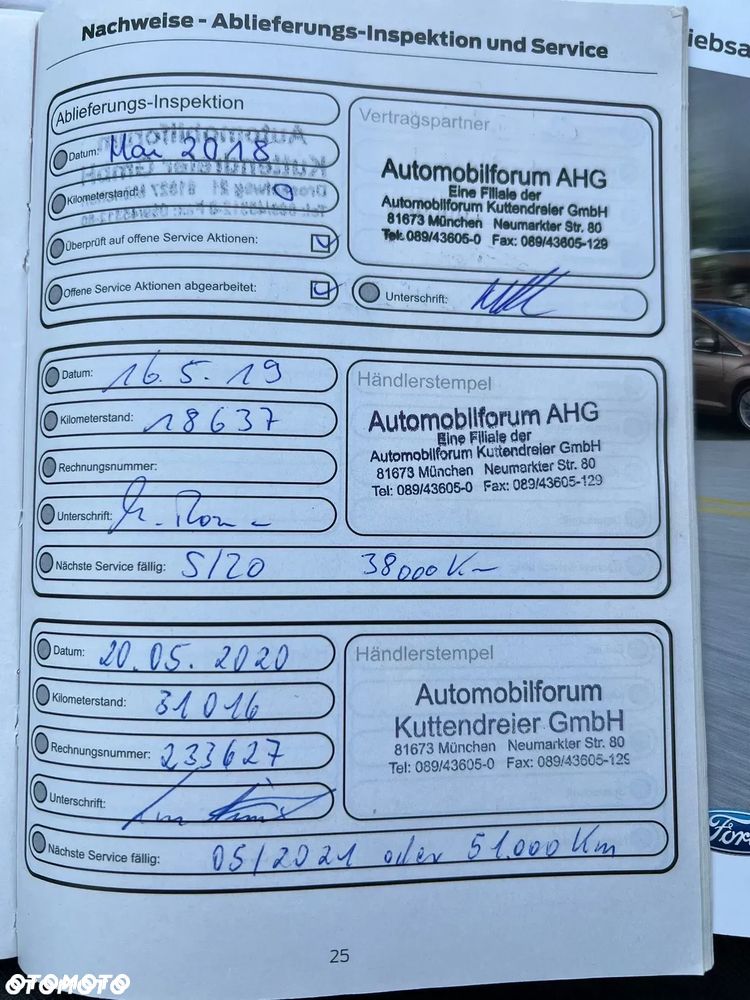 Nachweise - Ablieferungs-Inspektion und Service
iebsa
Ablieferungs-Inspektion
Datum: Mai 2018
Kilometerstand: 0
Überprüft auf offene Service Aktionen:
Offene Service Aktionen abgearbeitet:
Vertragspartner
Automobilforum AHG
Eine Filiale der
Automobilforum Kuttendreier GmbH
81673 München Neumarkter Str. 80
Tel: 089/43605-0 Fax: 089/43605-129
Unterschrift:
Datum: 16.5.19
Kilometerstand: 18637
Rechnungsnummer:
Unterschrift:
Händlerstempel
Automobilforum AHG
Eine Filiale der
Automobilforum Kuttendreier GmbH
81673 München Neumarkter Str. 80
Tel: 089/43605-0 Fax: 089/43605-129
Nächste Service fällig: 5/20 38000 Km
Datum: 20.05.2020
Kilometerstand: 31016
Rechnungsnummer: 233627
Unterschrift:
Händlerstempel
Automobilforum
Kuttendreier GmbH
81673 München Neumarkter Str. 80
Tel: 089/43605-0 Fax: 089/43605-129
Nächste Service fällig: 05/2021 oder 51.000 Km
25
Ford
OTOMOTO